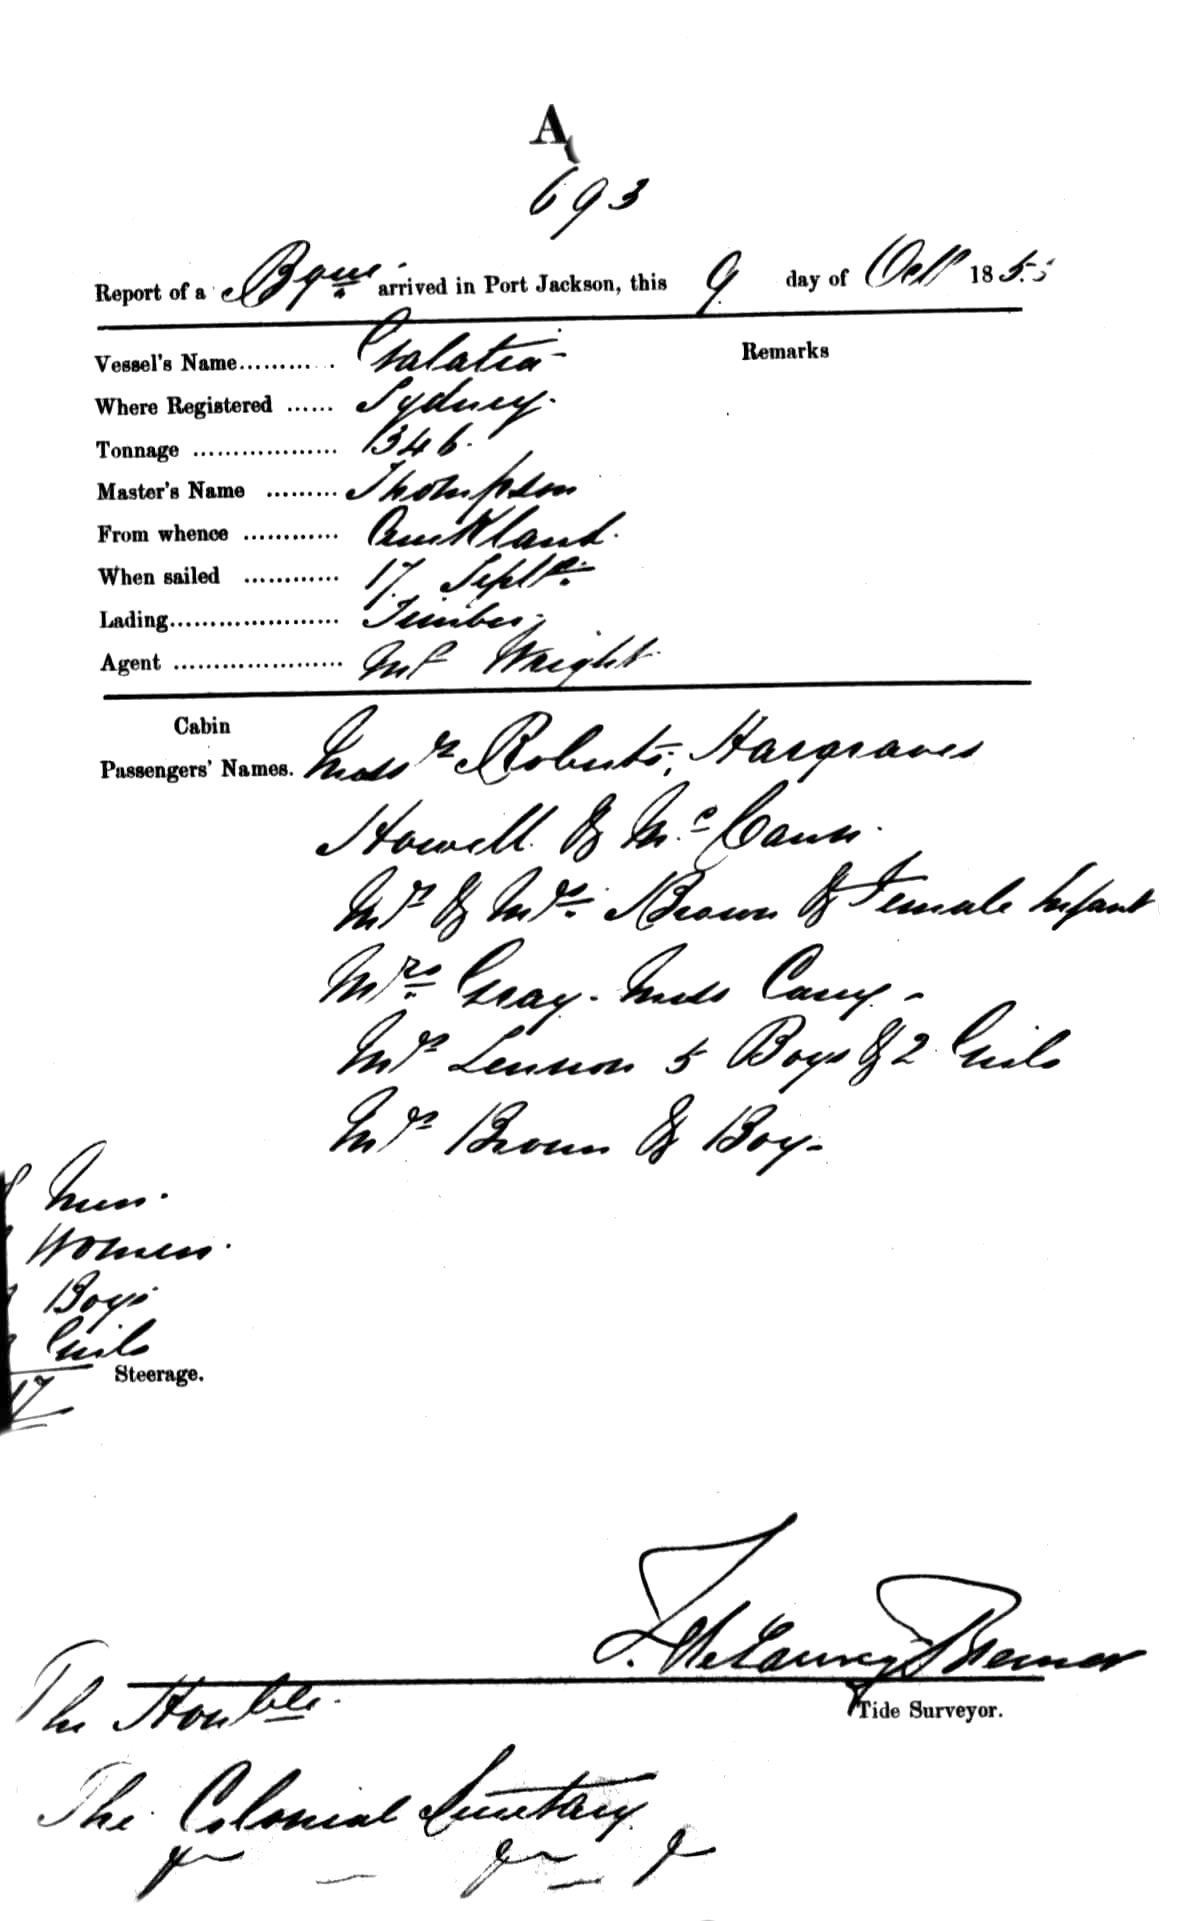 A
693
Report of a Bque arrived in Port Jackson, this 9 day of Oct 1855
Vessel's Name.......... Galatea Remarks
Where Registered ...... Sydney.
Tonnage .................. 346.
Master's Name ......... Thompson
From whence ............ Auckland.
When sailed ............ 17 Septr.
Lading..................... Timber
Agent ..................... Mr Wright
Cabin
Passengers' Names. Messrs Roberts, Hargraves
Howell & Mc Cann.
Mr & Mrs. Brown & Female Infant
Mrs Gray. Miss Carey.
Mrs Lennon 5 Boys & 2 Girls
Mrs Brown & Boy.
Men.
Women.
Boys
Girls
Steerage.
17
Tide Surveyor.
The Honble.
The Colonial Secretary